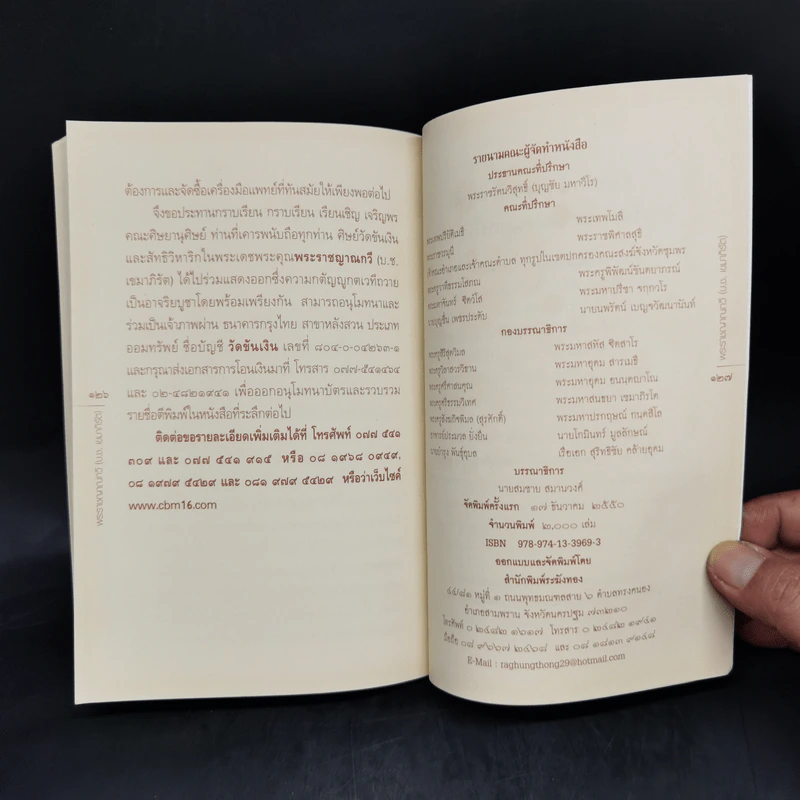 ต้องการและจัดซื้อเครื่องมือแพทย์ที่ทันสมัยให้เพียงพอต่อไป
จึงขอประทานกราบเรียน กราบเรียน เรียนเชิญ เจริญพร
คณะศิษยานุศิษย์ ท่านที่เคารพนับถือทุกท่าน ศิษย์วัดขันเงิน
และสัทธิวิหาริกในพระเดชพระคุณพระราชญาณกวี (บ.ช.
เขมาภิรัต) ได้ไปร่วมแสดงออกซึ่งความกตัญญูกตเวทีถวาย
เป็นอาจริยบูชาโดยพร้อมเพรียงกัน สามารถอนุโมทนาและ
ร่วมเป็นเจ้าภาพผ่าน ธนาคารกรุงไทย สาขาหลังสวน ประเภท
ออมทรัพย์ ชื่อบัญชี วัดขันเงิน เลขที่ ๘๐๔-๐-๐๔๒๖๓-๑
และกรุณาส่งเอกสารการโอนเงินมาที่ โทรสาร ๐๗๗-๕๔๑๔๖๔
และ ๐๒-๔๘๒๑๙๔๑ เพื่อออกอนุโมทนาบัตรและรวบรวม
รายชื่อตีพิมพ์ในหนังสือที่ระลึกต่อไป
ติดต่อขอรายละเอียดเพิ่มเติมได้ที่ โทรศัพท์ ๐๗๗ ๕๔๑
๓๐๙ และ ๐๗๗ ๕๔๑ ๙๑๕ หรือ ๐๘ ๑๙๖๘ ๐๙๔๙,
๐๘ ๑๙๗๙ ๕๔๒๙ และ ๐๘๑ ๙๗๙ ๕๔๒๙ หรือว่าเว็บไซด์
www.cbm16.com
๑๒๖
พระราชญาณกวี (บ.ช. เขมาภิรัต)
รายนามคณะผู้จัดทำหนังสือ
ประธานคณะที่ปรึกษา
พระราชรัตนวิสุทธิ์ (บุญชัย มหาวีโร)
คณะที่ปรึกษา
พระเทพปริยัติเมธี พระเทพโมลี
พระราชพิศาลสุธี
เจ้าคณะอำเภอและเจ้าคณะตำบล ทุกรูปในเขตปกครองคณะสงฆ์จังหวัดชุมพร
พระครูพิพัฒน์ขันตยาภรณ์
พระมหาจันทร์ พระมหาปรีชา จฤกวโร
นายนพรัตน์ เบญจวัฒนานันท์
กองบรรณาธิการ
พระมหาสหัส ฐิตสาโร
พระมหาอุดม สารเมธี
พระมหาอุดม
พระมหาสนธยา เขมาภิรโต
พระมหาปรกฤษณ์ กนฺตสิโล
นายโกมินทร์ มูลลักษณ์
นายบำรุง พันธุ์อุบล เรือเอก สุริทธิชัย คล้ายอุดม
บรรณาธิการ
นายสมชาย สมานวงค์
จัดพิมพ์ครั้งแรก ๑๗ ธันวาคม ๒๕๕๐
จำนวนพิมพ์ ๒,๐๐๐ เล่ม
ISBN 978-974-13-3969-3
ออกแบบและจัดพิมพ์โดย
สำนักพิมพ์ระฆังทอง
๔๔/๘๑ หมู่ที่ ๑ ถนนพุทธมณฑลสาย ๖ ตำบลทรงคนอง
อำเภอสามพราน จังหวัดนครปฐม ๗๓๒๑๐
โทรศัพท์ ๐ ๒๔๘๒ ๑๖๑๗ โทรสาร ๐ ๒๔๘๒ ๑๙๔๑
มือถือ ๐๘ ๙๖๖๗ ๒๕๖๘ และ ๐๘ ๑๘๑๓ ๙๑๔๘
E-Mail : raghungthong29@hotmail.com
๑๒๗
พระราชญาณกวี (บ.ช. เขมาภิรัต)